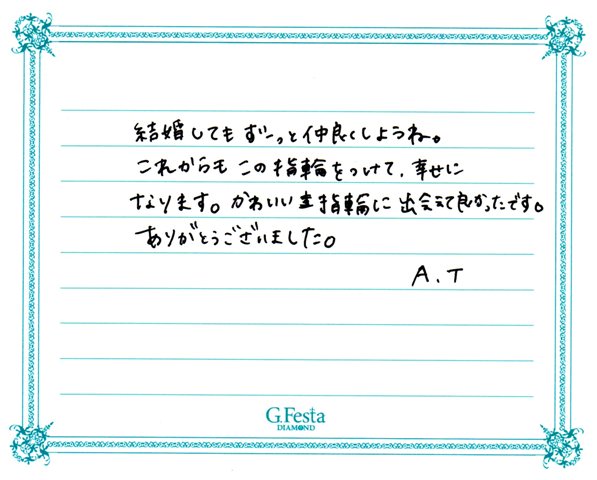 結婚してもずーっと仲良くしようね。
これからも この指輪をつけて、幸せに
なります。かわいい指輪に出会えて良かったです。
ありがとうございました。
A.T
G.Festa
DIAMOND